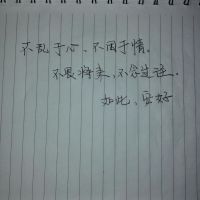 不乱于心、不困于情。
不畏将来、不念过往。
如此、安好